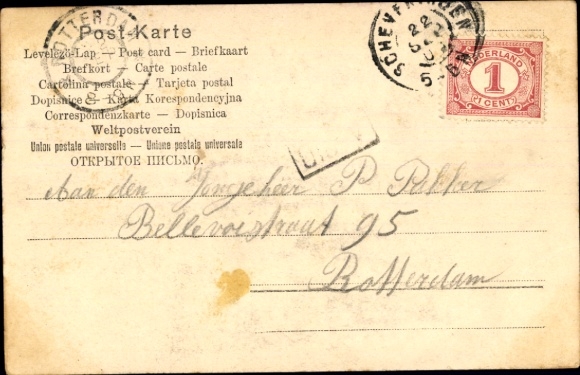 Post-Karte
Levelező-Lap — Post card — Briefkaart
Brefkort — Carte postale
Cartolina postale — Tarjeta postal
Dopisnice — Karta Korespondencyjna
Correspondenzkarte — Dopisnica
Weltpostverein
Union postale universelle — Unione postale universale
ОТКРЫТОЕ ПИСЬМО.
SCHEVENINGEN
22
5
NEDERLAND
1
CENT
Aan den Jongeheer P. Pikker
Bellevoistraat 95
Rotterdam